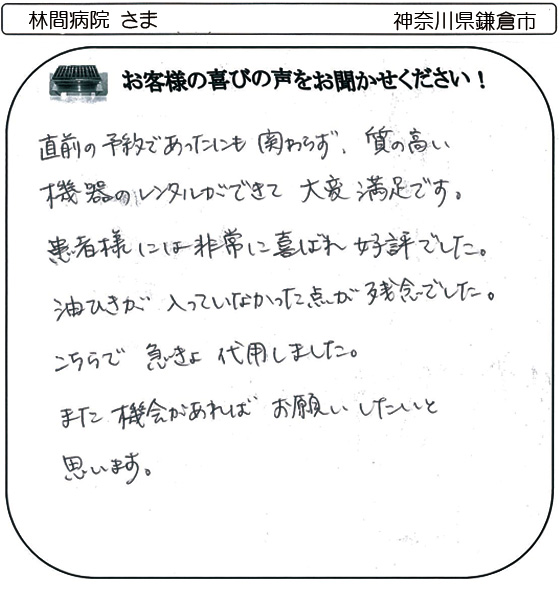 林間病院 さま
神奈川県鎌倉市
お客様の喜びの声をお聞かせください！
直前の予約であったにも関わらず、質の高い
機器のレンタルができて 大変満足です。
患者様には非常に喜ばれ 好評でした。
油ひきが 入っていなかった点が残念でした。
こちらで 急きょ 代用しました。
また機会があれば お願いしたいと
思います。